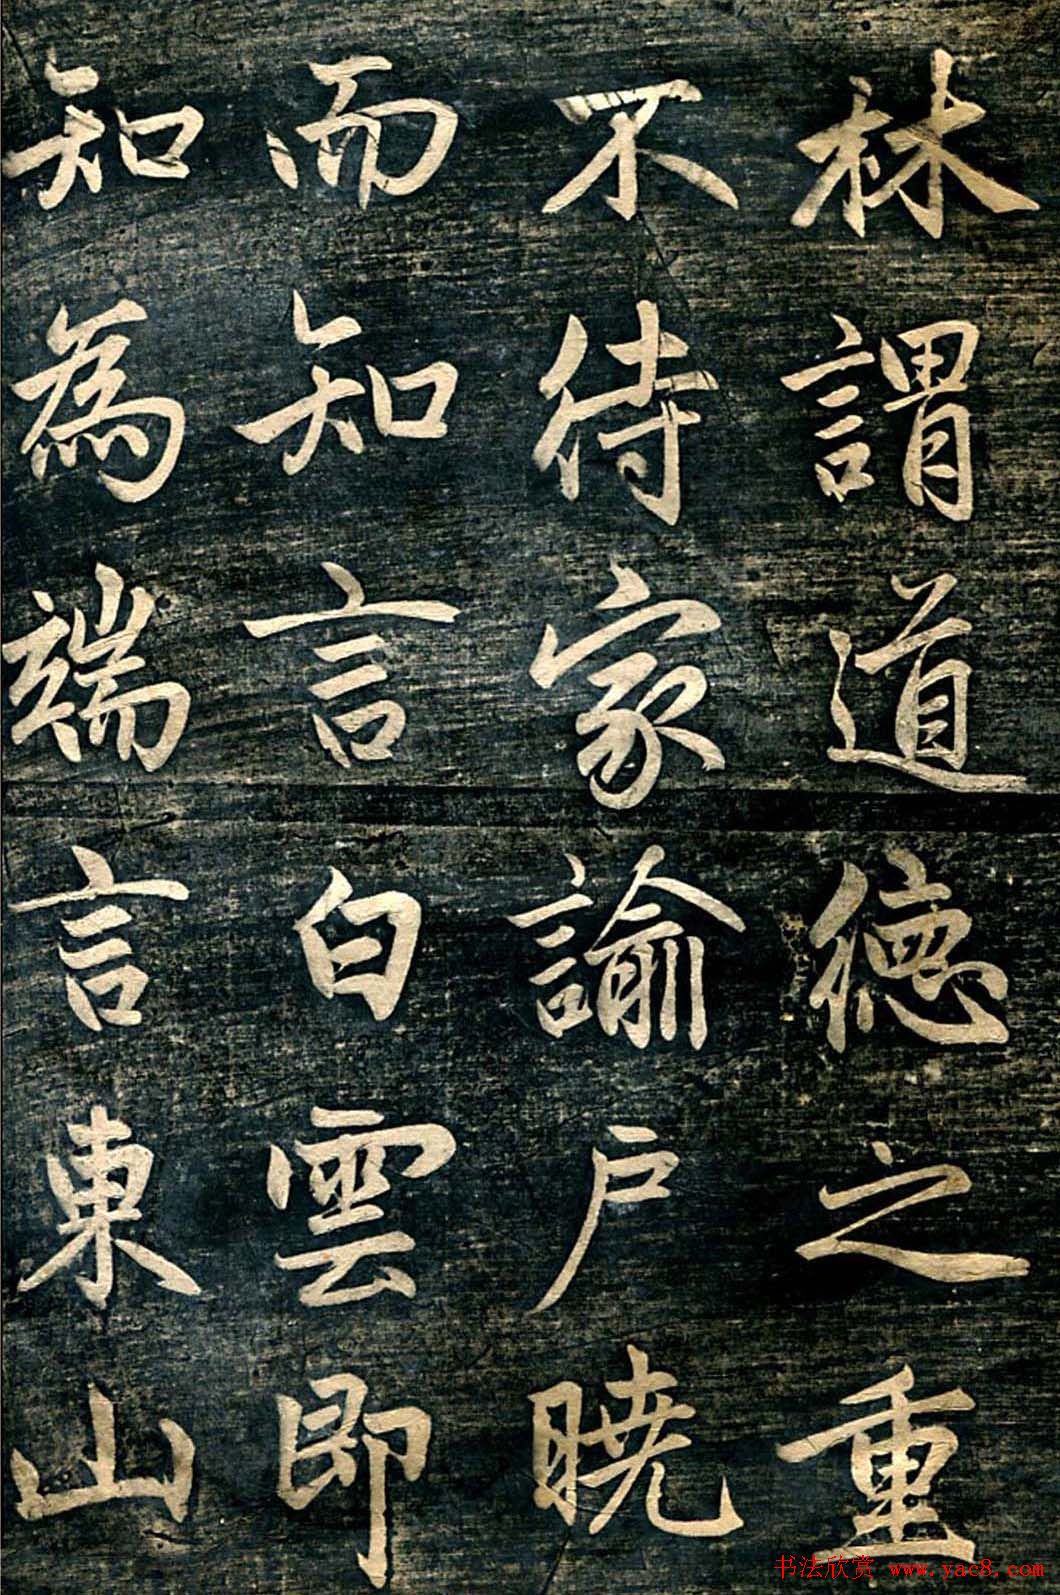 林謂道德之重
不待家諭戶曉
而知言白雲即
知為端言東山
书法欣赏 www.yac8.com